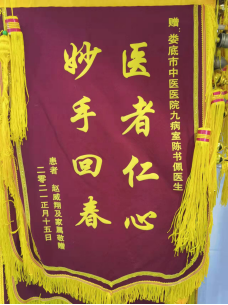 赠：娄底市中医医院九病室陈书佩医生
医者仁心
妙手回春
患者 赵威翔及家属敬赠
二零二一正月十五日